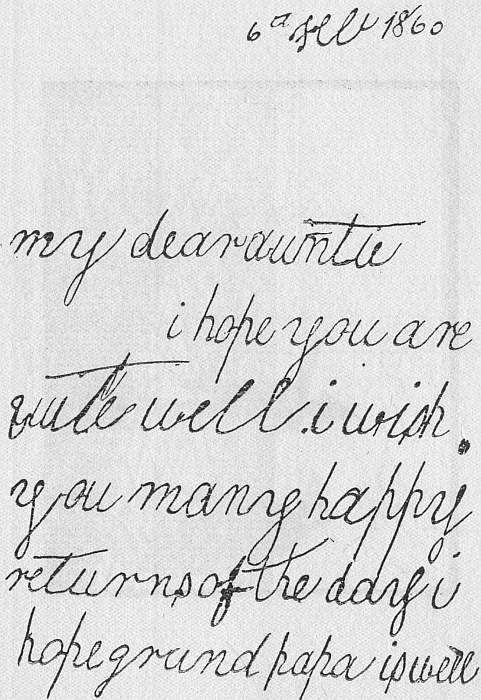 6 1860
my dear auntie
i hope you are
quite well. i wish
you many happy
returns of the day i
hope grand papa is well